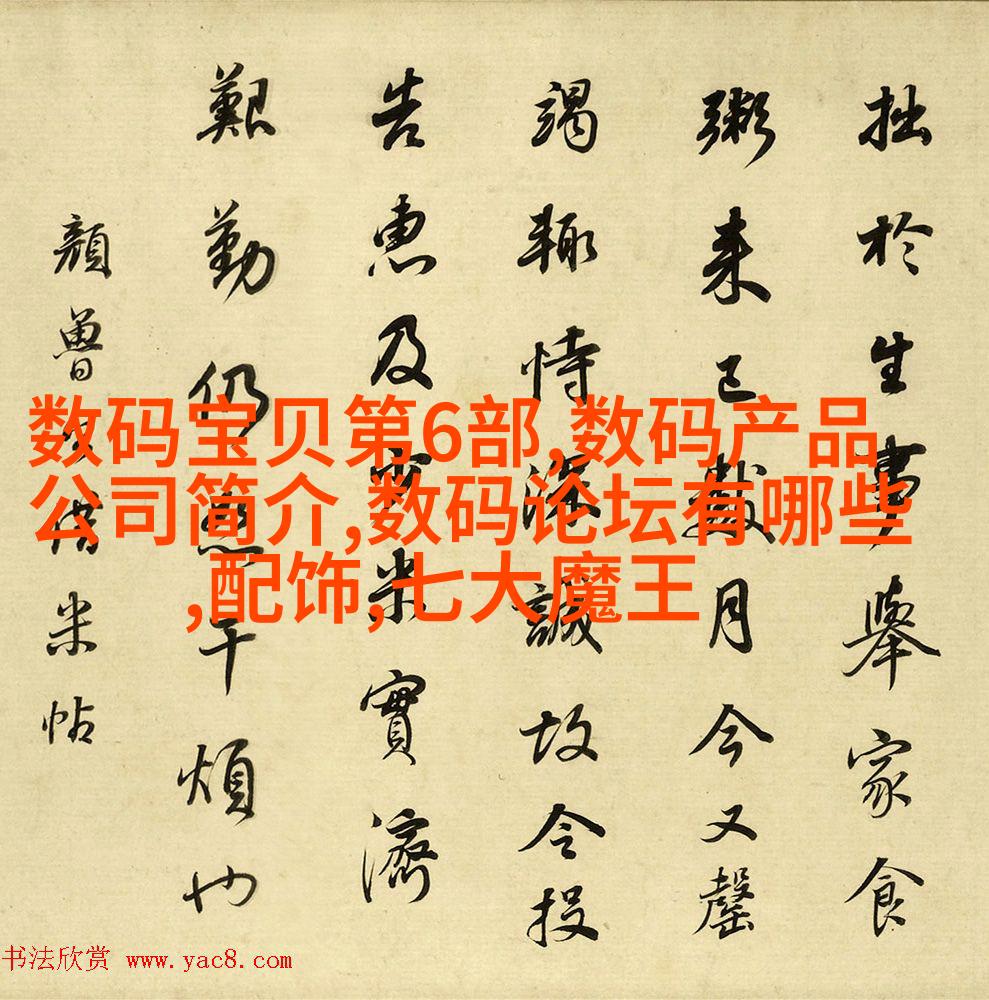 拙於生事舉家食
粥来已數月今又罄
竭輙恃深誠故令投
告惠及少米實濟
艱勤仍恕干煩也
顔魯公借米帖
数码宝贝第6部,数码产品
公司简介,数码论坛有哪些
,配饰,七大魔王
书法欣赏 www.yac8.com